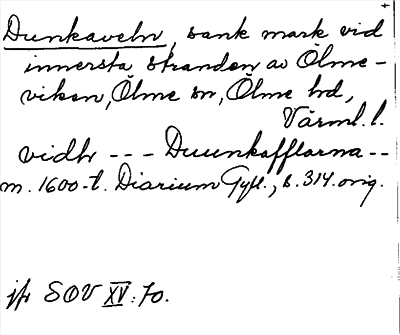 Dunkaveln, sank mark vid
innersta stranden av Ölme-
viken, Ölme sn, Ölme hd,
Värml. l.
vidh --- Duunkafflarna --
m. 1600-t. Diarium Gyll., s. 314. orig.
jfr SOV XV: 70.